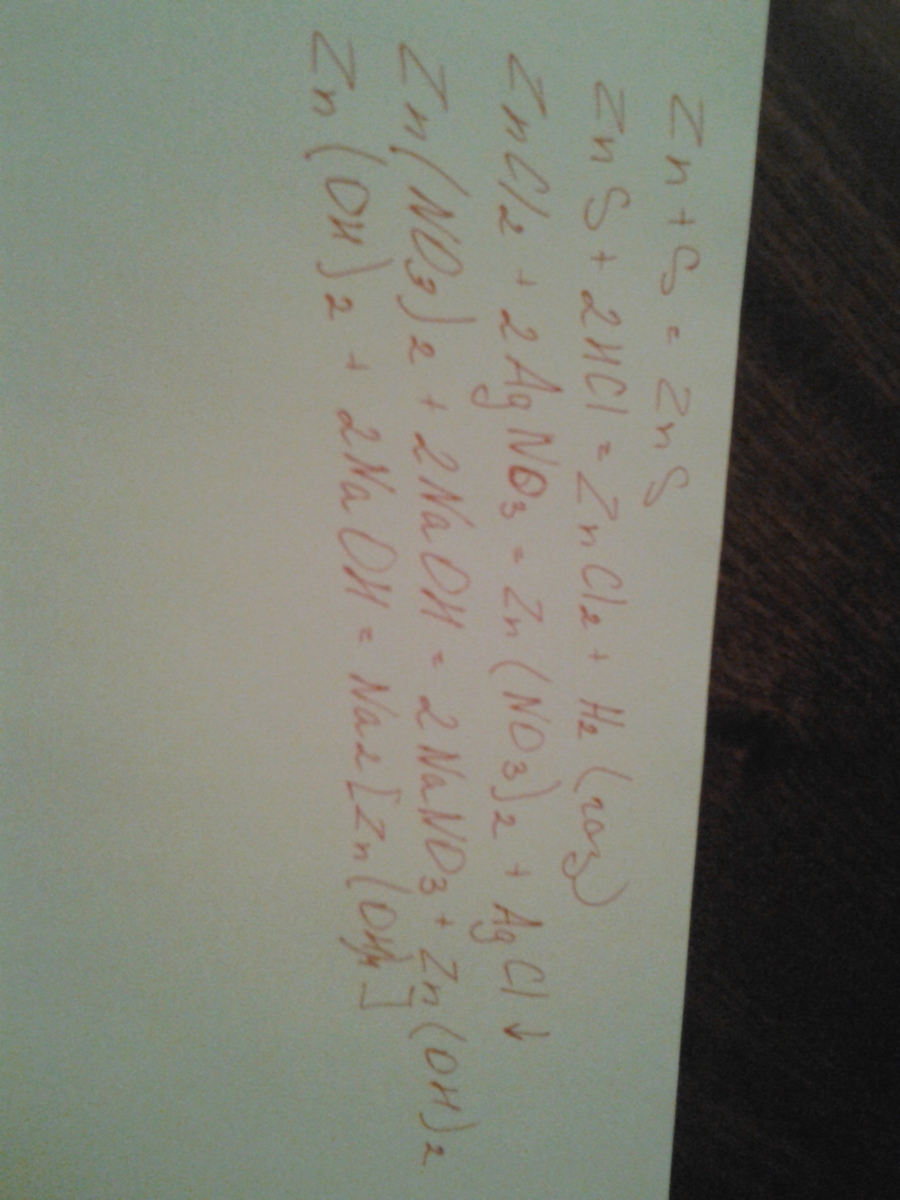 Zn + S = ZnS
ZnS + 2HCl = ZnCl2 + H2 (газ)
ZnCl2 + 2AgNO3 = Zn(NO3)2 + AgCl ↓
Zn(NO3)2 + 2NaOH = 2NaNO3 + Zn(OH)2
Zn(OH)2 + 2NaOH = Na2[Zn(OH)4]